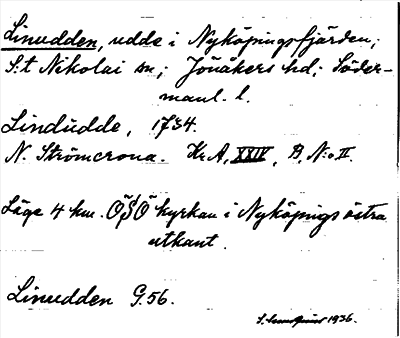 Linudden, udde i Nyköpingsfjärden;
S:t Nikolai sn; Jönåkers hd; Söder-
manl. l.
Lindudde, 1734.
N. Strömcrona. Kr.A, XXIV, B, N:o II.
Läge 4 km. ÖSÖ kyrkan i Nyköpings östra
utkant.
Linudden G.56.
1936.